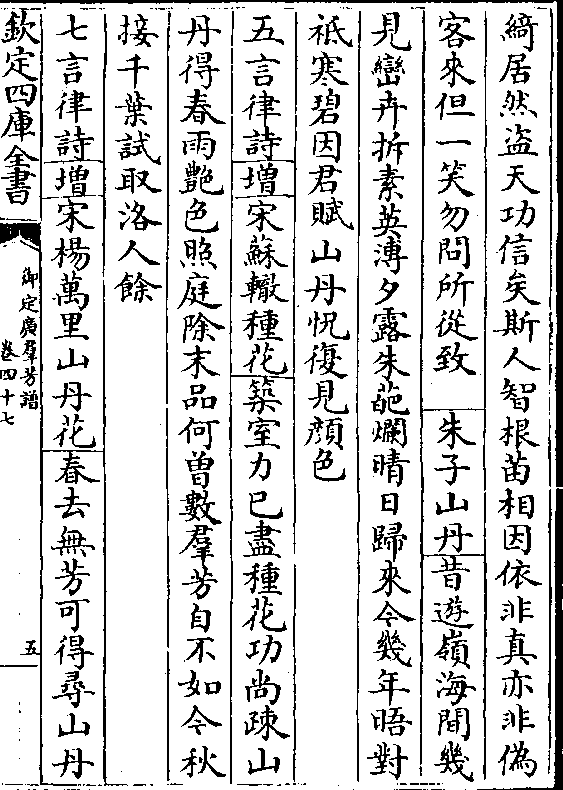 綺居然盜天功信矣斯人智根苗相因依非真亦非偽
客來但一笑勿問所從致　朱子山丹昔遊嶺海間幾
見巒卉拆素英溥夕露朱葩爛晴日歸來今幾年晤對
祗寒碧因君賦山丹怳復見顔色
五言律詩增宋蘇轍種花築室力已盡種花功尚疎山
丹得春雨艷色照庭除末品何曽數羣芳自不如今秋
接千葉試取洛人餘
七言律詩增宋楊萬里山丹花春去無芳可得尋山丹
欽定四庫全書
御定廣羣芳譜
卷四十七
五